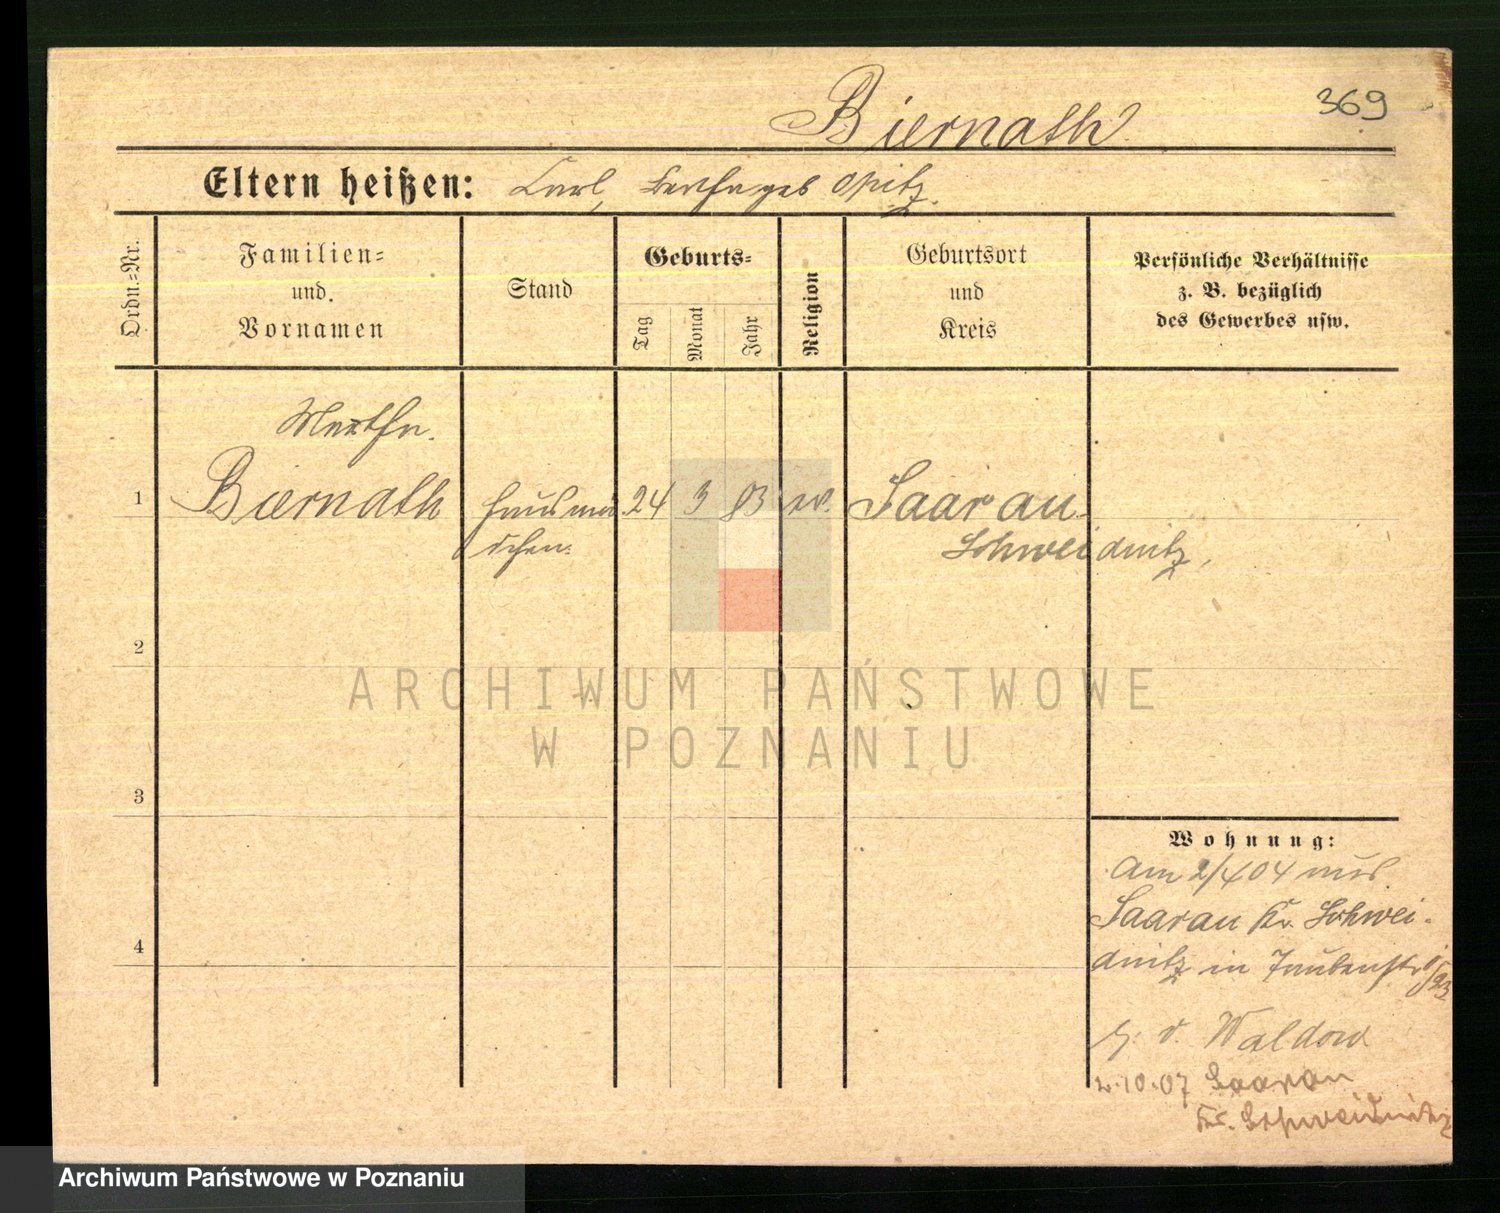 369
Biernath
Eltern heißen: Carl, Bertha geb Opitz.
Ordn.=Nr.
Familien=
und
Vornamen
Stand
Geburts=
Tag
Monat
Jahr
Religion
Geburtsort
und
Kreis
Persönliche Verhältnisse
z. B. bezüglich
des Gewerbes usw.
Martha
1 Biernath Hausmäd 24 3 83 ev. Saarau
chen. Schweidnitz,
2
ARCHIWUM PAŃSTWOWE
W POZNANIU
3
Wohnung:
am 2/4 04 aus
Saarau Kr. Schwei-
4
dnitz in Taubenstr
v. Waldow
2.10.07 Saarau
Kr. Schweidnitz
Archiwum Państwowe w Poznaniu